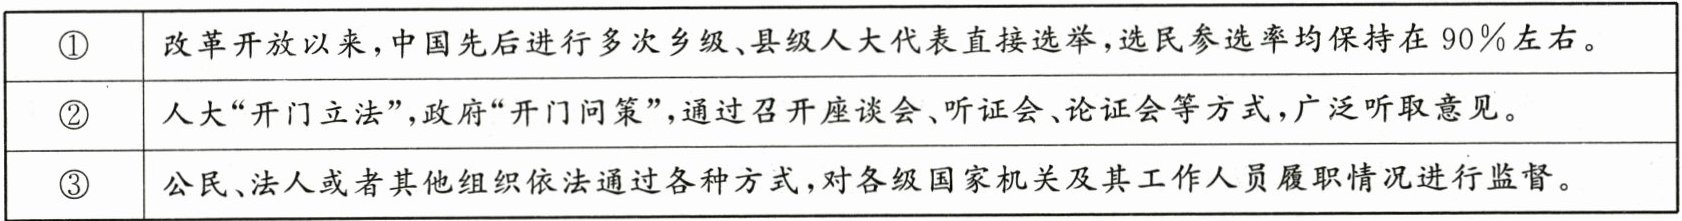 ① 改革开放以来,中国先后进行多次乡级、县级人大代表直接选举,选民参选率均保持在 90%左右。
② 人大“开门立法”,政府“开门问策”,通过召开座谈会、听证会、论证会等方式,广泛听取意见。
③ 公民、法人或者其他组织依法通过各种方式,对各级国家机关及其工作人员履职情况进行监督。